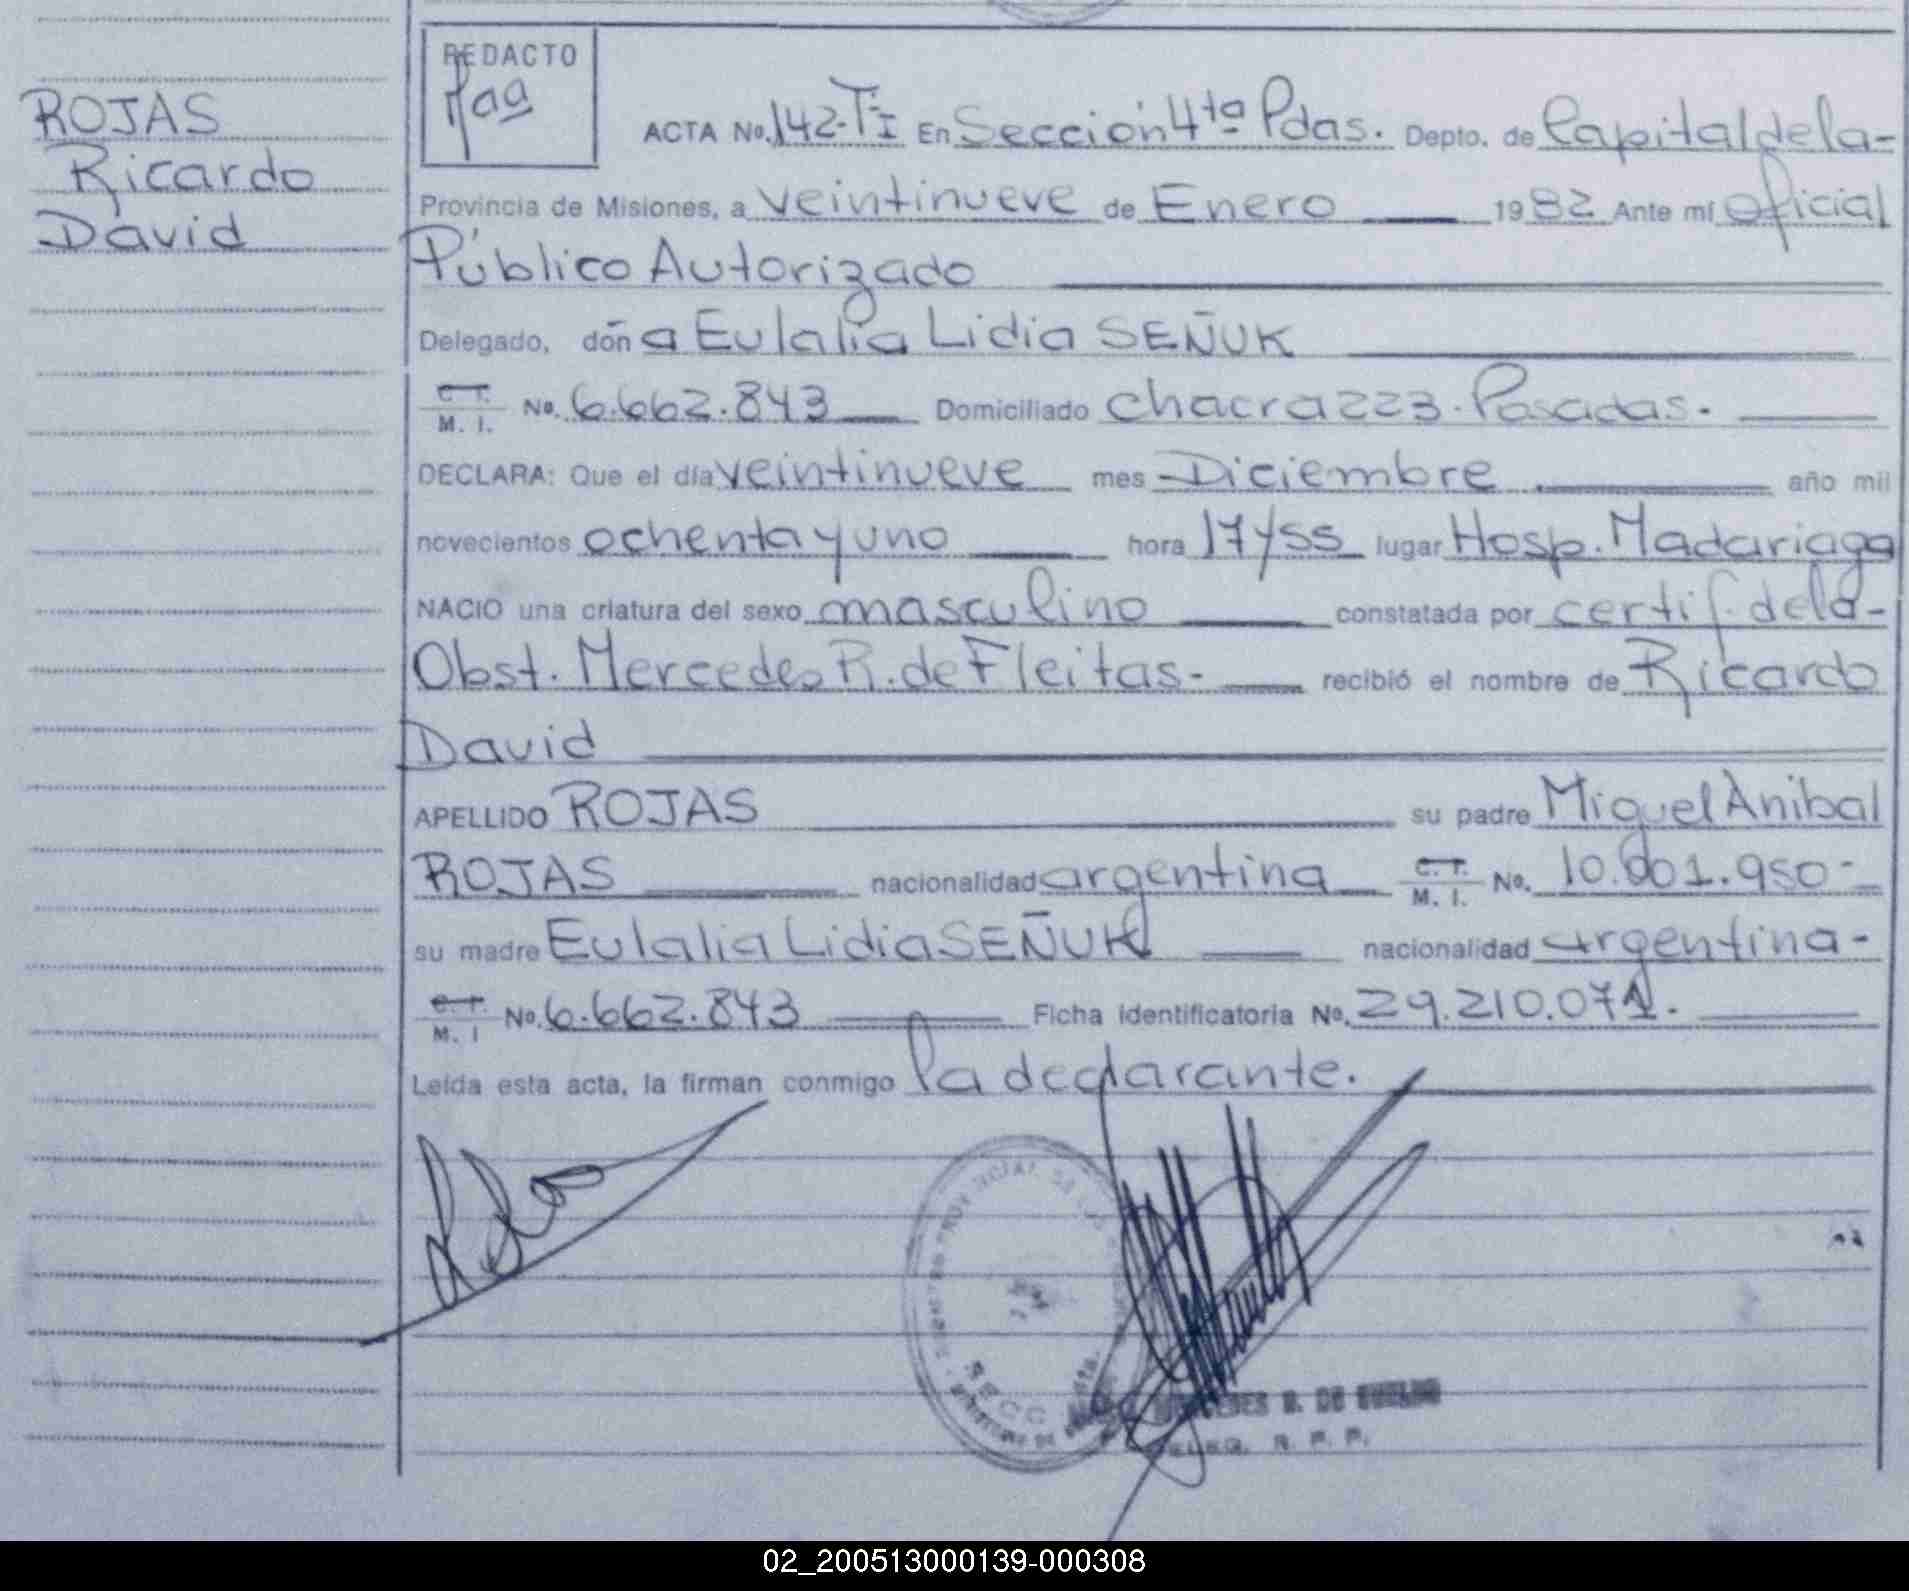 ROJAS
Ricardo
David
REDACTO
ACTA No. 142-TI En Sección 4ta Pdas. Depto. de Capital de la-
Provincia de Misiones, a veintinueve de Enero 1982 Ante mí Oficial
Público Autorizado
Delegado, doña Eulalia Lidia SEÑUK
C. I. M. I. No. 6.662.843 Domiciliado chacra 223. Posadas.
DECLARA: Que el día veintinueve mes Diciembre año mil
novecientos ochenta y uno hora 17/55 lugar Hosp. Madariaga
NACIO una criatura del sexo masculino constatada por certif. de la-
Obst. Mercedes R. de Fleitas- recibió el nombre de Ricardo
David
APELLIDO ROJAS su padre Miguel Anibal
ROJAS nacionalidad argentina C. I. M. I. No. 10.001.950-
su madre Eulalia Lidia SEÑUK nacionalidad argentina-
C. I. M. I No. 6.662.843 Ficha identificatoria No. 29.210.071.
Leída esta acta, la firman conmigo la declarante.
DE
R. P. P.
02_200513000139-000308